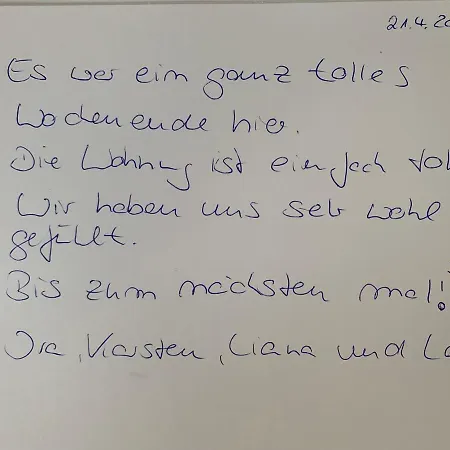 21.4.20
Es war ein ganz tolles
Wochenende hier.
Die Wohnung ist einfach tol
Wir haben uns sehr wohl
gefühlt.
Bis zum nächsten mal!
Karsten, Liana und